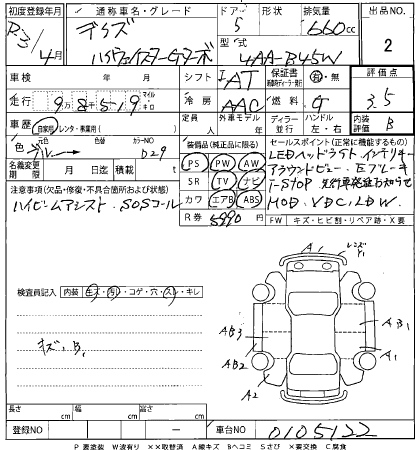 初度登録年月 通称車名・グレード ドア 形状 排気量 出品NO
R3/4月 デイズ 5 660cc 2
ハイウェイスターGターボ 型式 4AA-B45W
車検 年 月 シフト IAT 保証書 有・無 評価点
走行 9万8千519 マイル キロ 冷房 AAC 燃料 G 3.5
車歴 自家用 レンタ・事業用( ) 定員 人 外車モデル 年 ディーラー 並行 ハンドル 左・右 内装 B
色 色替 カラーNO 装備品(純正品に限る) セールスポイント(正常に機能するもの)
D29 PS PW AW LEDヘッドライト インテリキー
名義変更期限 月 日 積載 t SR TV ナビ アラウンドビュー Eブレーキ
注意事項(欠品・修復・不具合箇所および状態) カワ エアB ABS I-STOP 先行車発進お知らせ
ハイビームアシスト SOSコール R券 5990 円 MOD、VDC、LDW
FW キズ・ヒビ割・リペア跡・X要
検査員記入 内装 キズ・汚・コゲ・穴・スレ・キレ
A1 レンズY1
キズ、B1 AB3 AB1
AB2 A1
A2
長さ cm 幅 cm 高さ cm
登録NO 車台NO 0105122
P 要塗装 W波有り ××取替済 A線キズ Bヘコミ Sさび ×要交換 C腐食